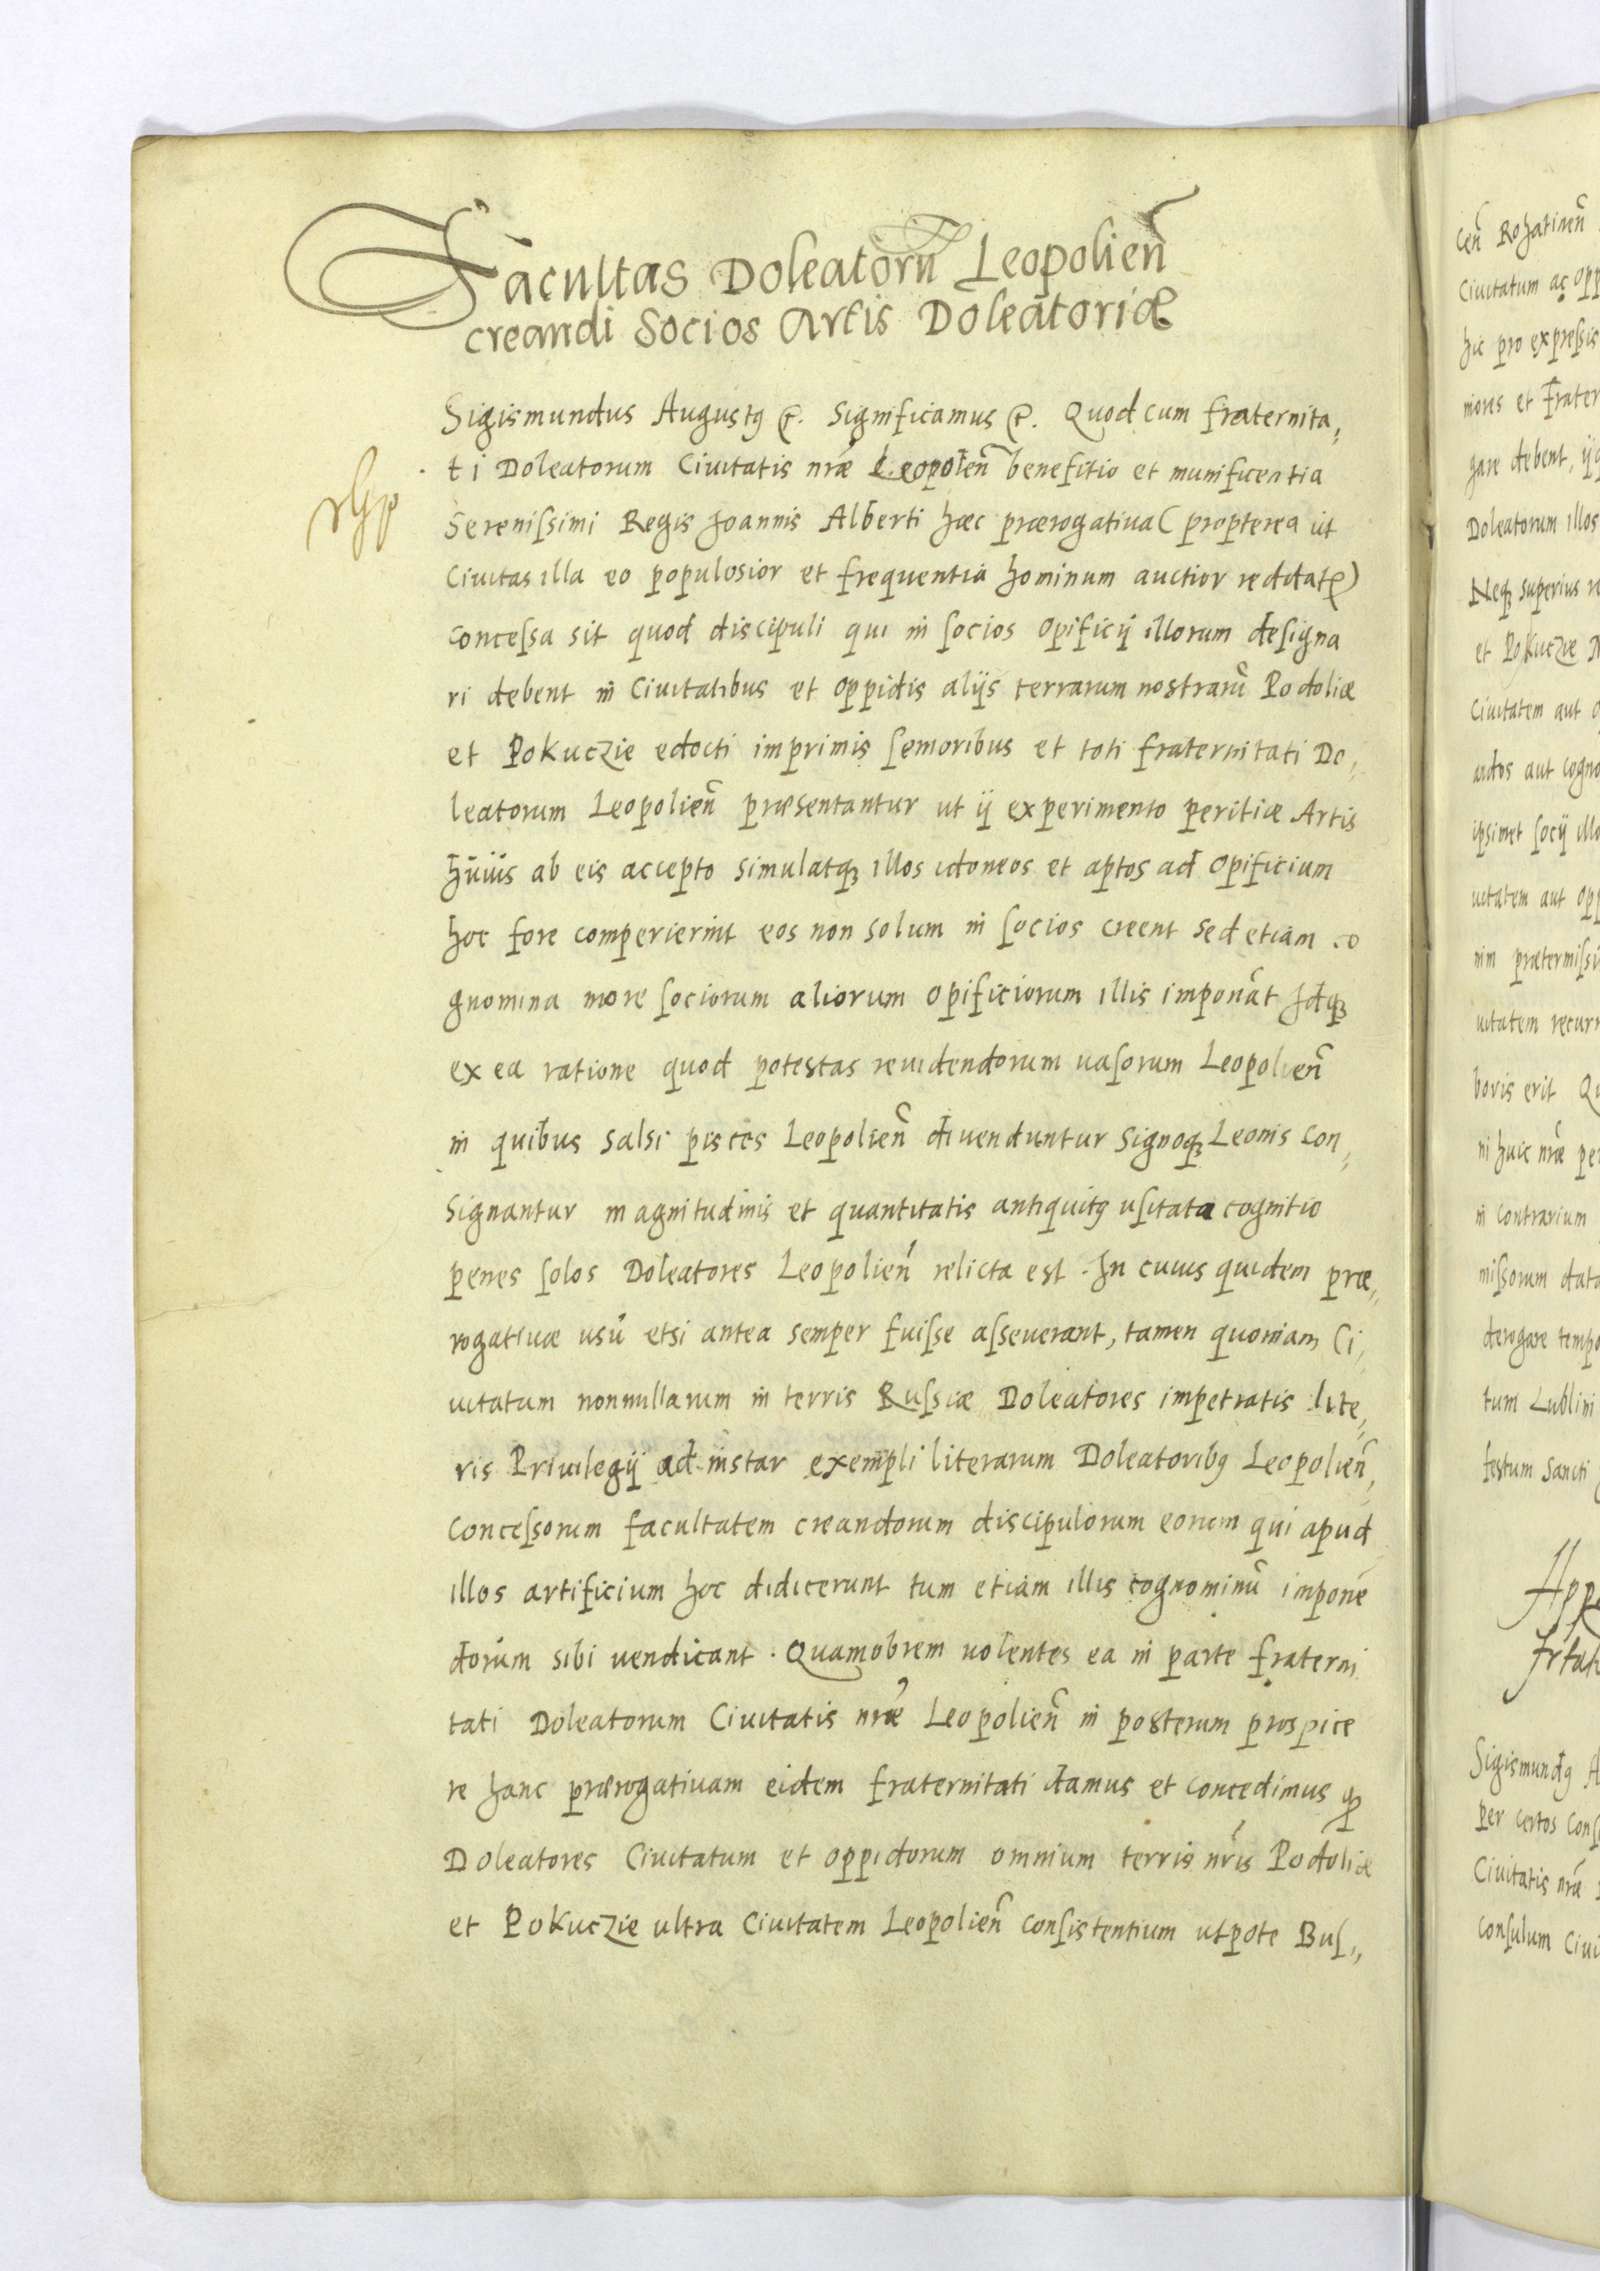 Facultas Doleatorū Leopolień
creandi Socios Artis Doleatoriæ
Sigismundus Augustꝯ &. Significamus &. Quod cum fraternita„
ti Doleatorum Ciuitatis nrǣ Leopolień benefitio et munificentia
Serenißimi Regis Joannis Alberti hæc prærogatiua ( propterea ut
Ciuitas illa eo populosior et frequentia hominum auctior reddatꝛ)
conceßa sit quod discipuli qui in socios opificij illorum designa
ri debent in Ciuitatibus et oppidis alijs terrarum nostrarū Podoliæ
et Pokuczie edocti imprimis senioribus et toti fraternitati Do„
leatorum Leopolień præsentantur ut ij experimento peritiæ Artis
huius ab eis accepto simulatqꝫ illos idoneos et aptos ad opificium
hoc fore comperierint eos non solum in socios creent sed etiam co
gnomina more sociorum aliorum opificiorum illis imponāt Idqꝫ
ex ea ratione quod potestas reuidendorum uasorum Leopolień
in quibus salsi pisces Leopolień diuenduntur signoqꝫ Leonis con„
signantur magnitudinis et quantitatis antiquitꝯ usitata cognitio
penes solos Doleatores Leopolień relicta est. In cuius quidem præ„
rogatiuæ usū etsi antea semper fuiße aßeuerant, tamen quoniam Ci„
uitatum nonnullarum in terris Rußiæ Doleatores impetratis lite„
ris Priuilegij ad instar exempli literarum Doleatoribꝯ Leopolień
conceßorum facultatem creandorum discipulorum eorum qui apud
illos artificium hoc didicerunt tum etiam illis cognominū imponē
dorum sibi uendicant. Quamobrem uolentes ea in parte fraterni
tati Doleatorum Ciuitatis nrǣ Leopolień in posterum prospice
re hanc prærogatiuam eidem fraternitati damus et concedimus ꝙ
Doleatores Ciuitatum et oppidorum omnium terris nr̄is Podoliæ
et Pokuczie ultra Ciuitatem Leopolień consistentium utpote Bus„
ceń Rohatineń
Ciuitatum ac opp
hic pro expreßis
niores et frater
gare debent, ijq
Doleatorum illos
Neqꝫ superius
et Pokuczie
Ciuitatem aut
ipsimet socij illo
uitatem aut opp
uitatem recurr
boris erit Qu
ni huic nrǣ pe
in contrarium
mißorum data
derogare tempo
tum Lublini
festum Sancti
Appe
Sigismundꝯ A
per certos cons
Ciuitatis nrǣ
consulum Ciui